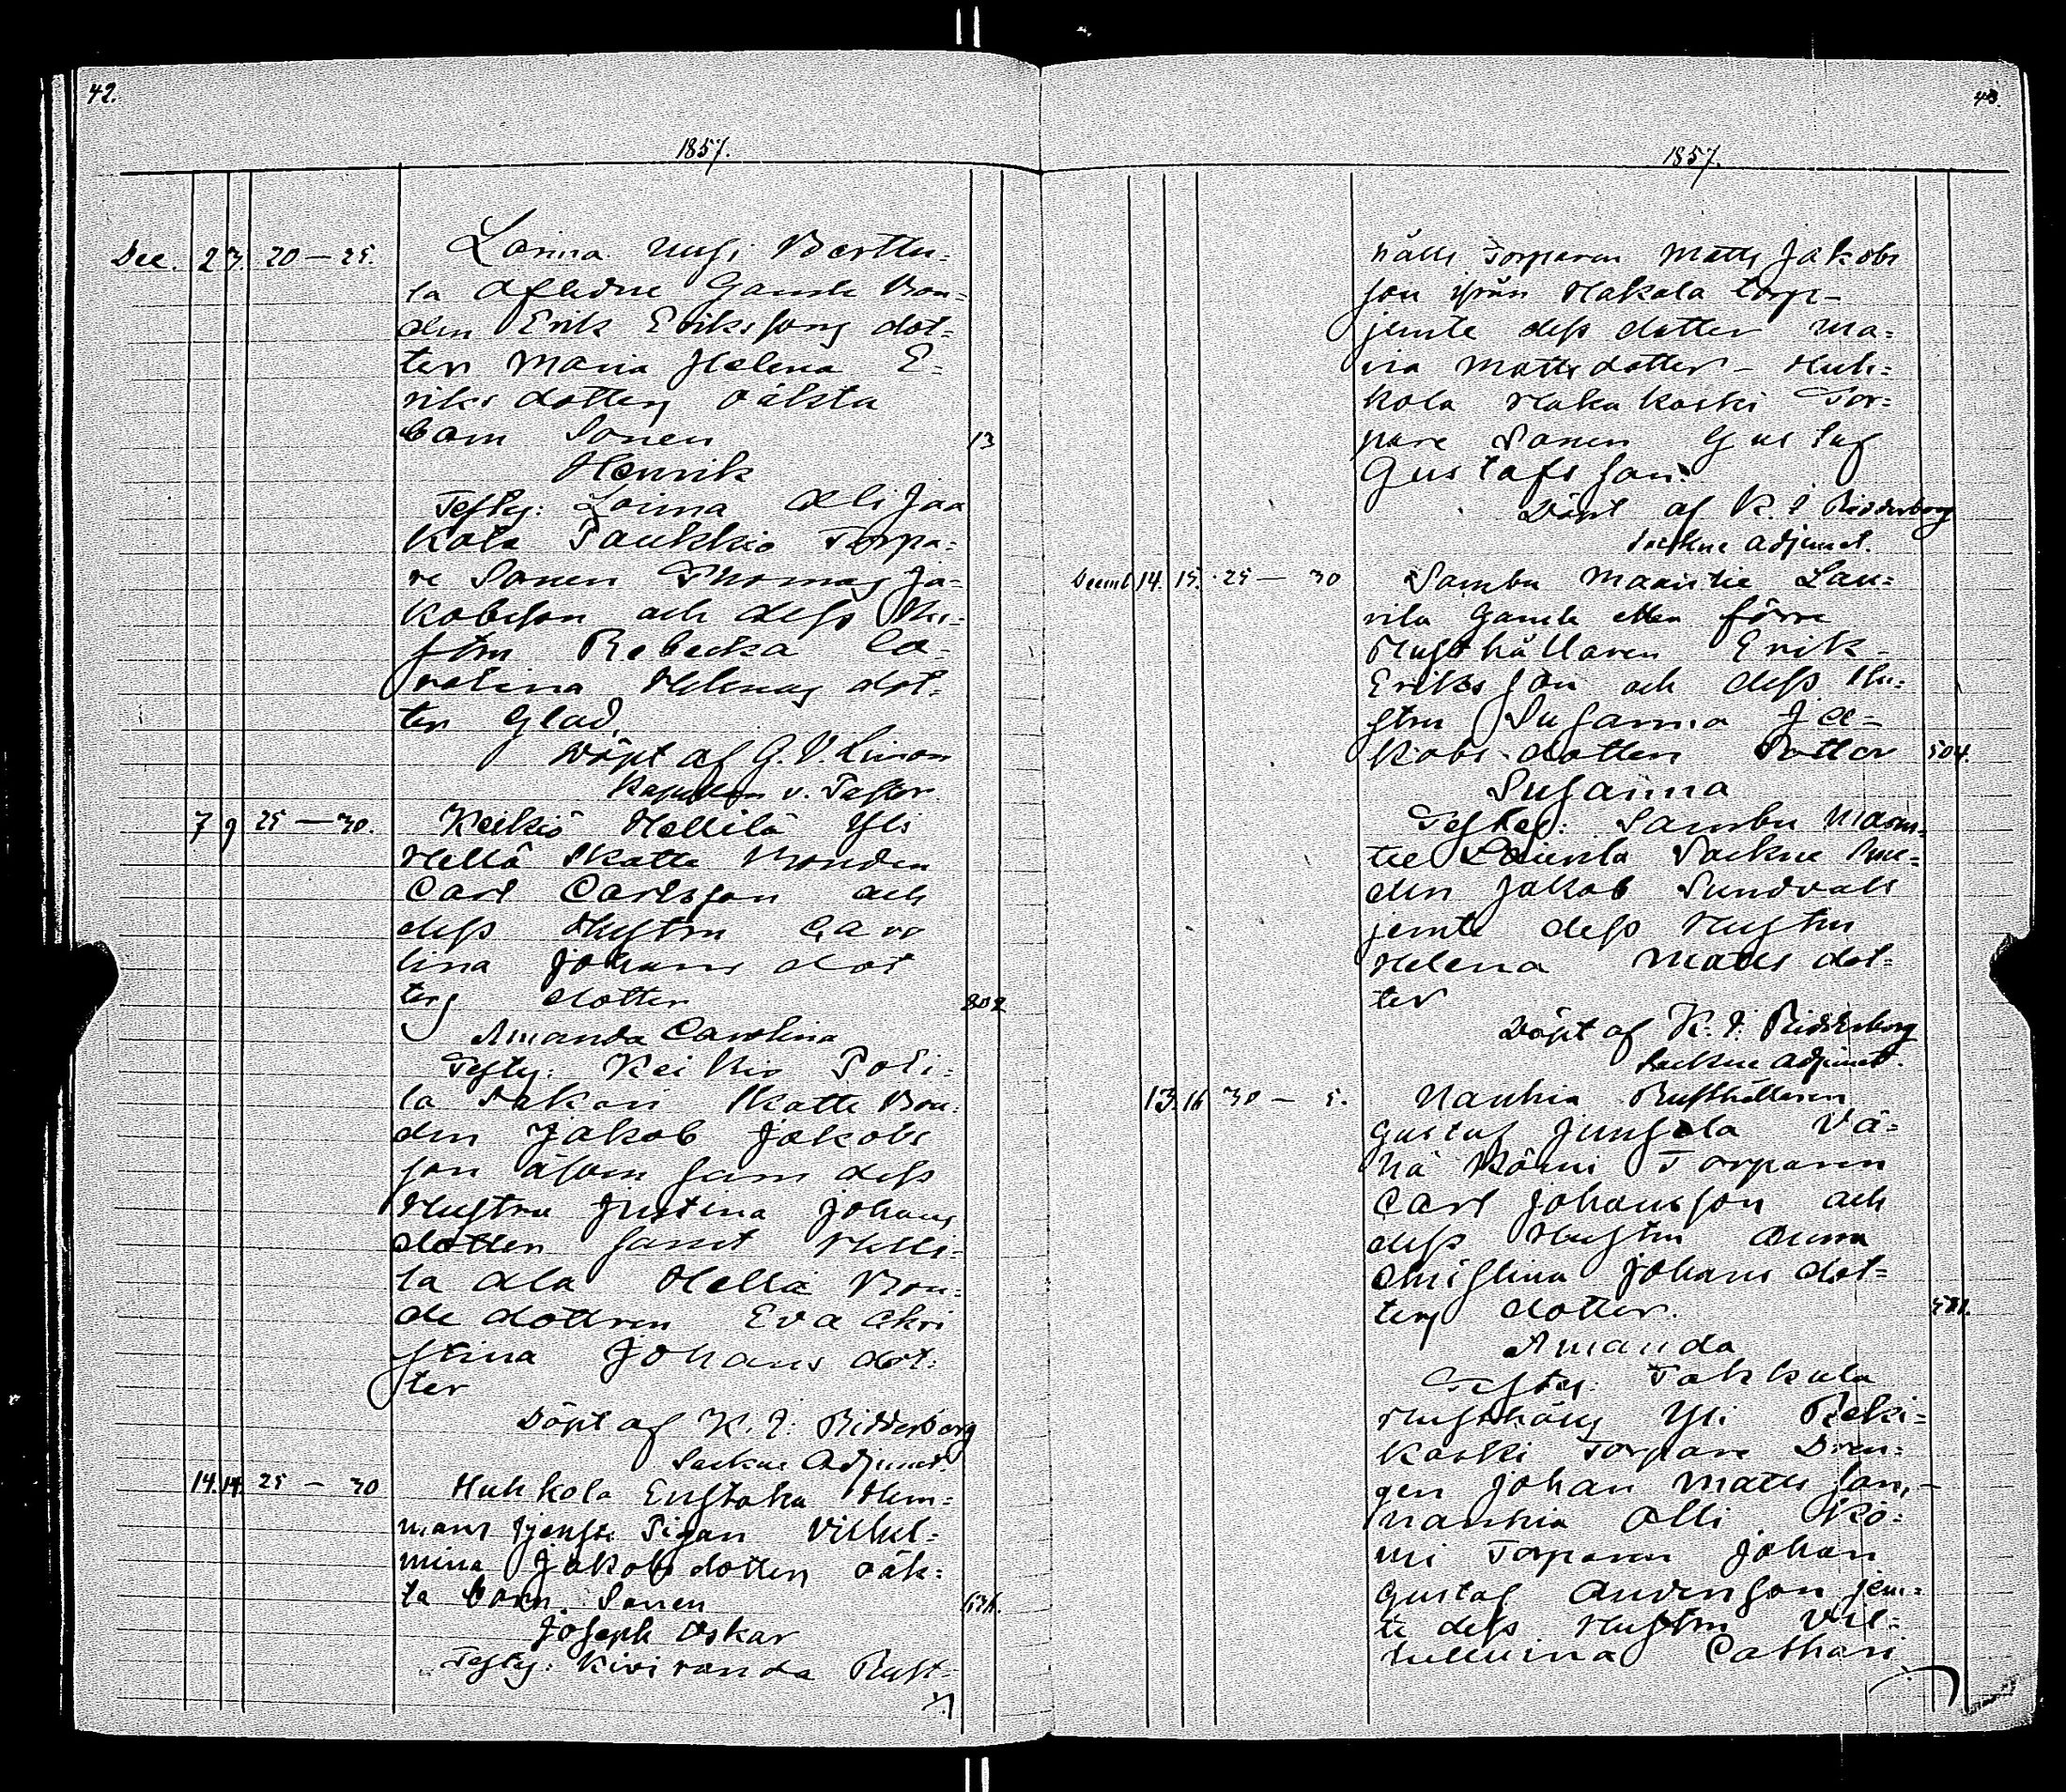 42.
1857.
Dec. 2 3. 20 — 25. Loima Uusi Berttu=
la Aflidne Gamle Bon=
den Erik Erikssons dot=
ter Maria Helena E=
riks dotters oäkta
barn Sonen 13
Henrik
Testes: Loima Ali Jaa
kola Paukkio Torpa=
re Sonen Thomas Ja=
kobsson och dess Hu=
stru Rebecka Ca=
rolina Helenas dot=
ter Glad,
Döpt af G. V. Limon
Kapellan v. Pastor
7 9 25 — 30. Keikiö Hellilä Yli
Hellä Skatte Bonden
Carl Carlsson och
dess Hustru Caro
lina Johans dot
ters dotter 802
Amanda Carolina
Testes: Keikiö Poli=
la Sakari Skatte Bon=
den Jakob Jakobs
son äfven som dess
Hustru Justina Johans
dotter samt Helli=
la Ala Hellä Bon=
de dottren Eva Chri
stina Johans dot=
ter
Döpt af K. J. Ridderborg
Sockne Adjunct.
14. 14. 25 — 30 Huhkola Eustola Hem=
mans tjenste Pigan Vilhel=
mina Jakobs dotters oäk=
ta barn. Sonen 636.
Joseph Oskar
Testes: Kiviranda Rust=
43.
1857.
hålls Torparen Matts Jakobs
son ifrån Hakala torp
jemte dess dotter Ma=
ria Matts dotter - Huh=
kola Haka Koski Tor=
pare Sonen Gustaf
Gustafsson.
Döpt af K. J. Ridderborg
Sockne Adjunct.
Decemb. 14. 15. 25 — 30 Sambu Maantie Lau=
rila Gamle eller förre
Rusthållaren Erik
Eriksson och dess Hu=
stru Susanna Ja=
kobs dotters Dotter 504.
Susanna
Testes: Sambu Maan=
tie Laurila Sockne Sme=
den Jakob Sundvall
jemte dess Hustru
Helena Matts dot=
ter
Döpt af K. J. Ridderborg
Sockne Adjunct.
13. 16 30 — 5. Nanhia Rusthållaren
Gustaf Junsola Vä=
hä Kömi Torparen
Carl Johansson och
dess Hustru Anna
Christina Johans dot=
ters dotter.
Amanda
Testes: Takkula
Rusthålls Yli Reki=
koski Torpare Dren=
gen Johan Matts son,
Nanhia Olli Kö=
mi Torparen Johan
Gustaf Andersson jem=
te dess Hustru Vil=
helmina Cathari